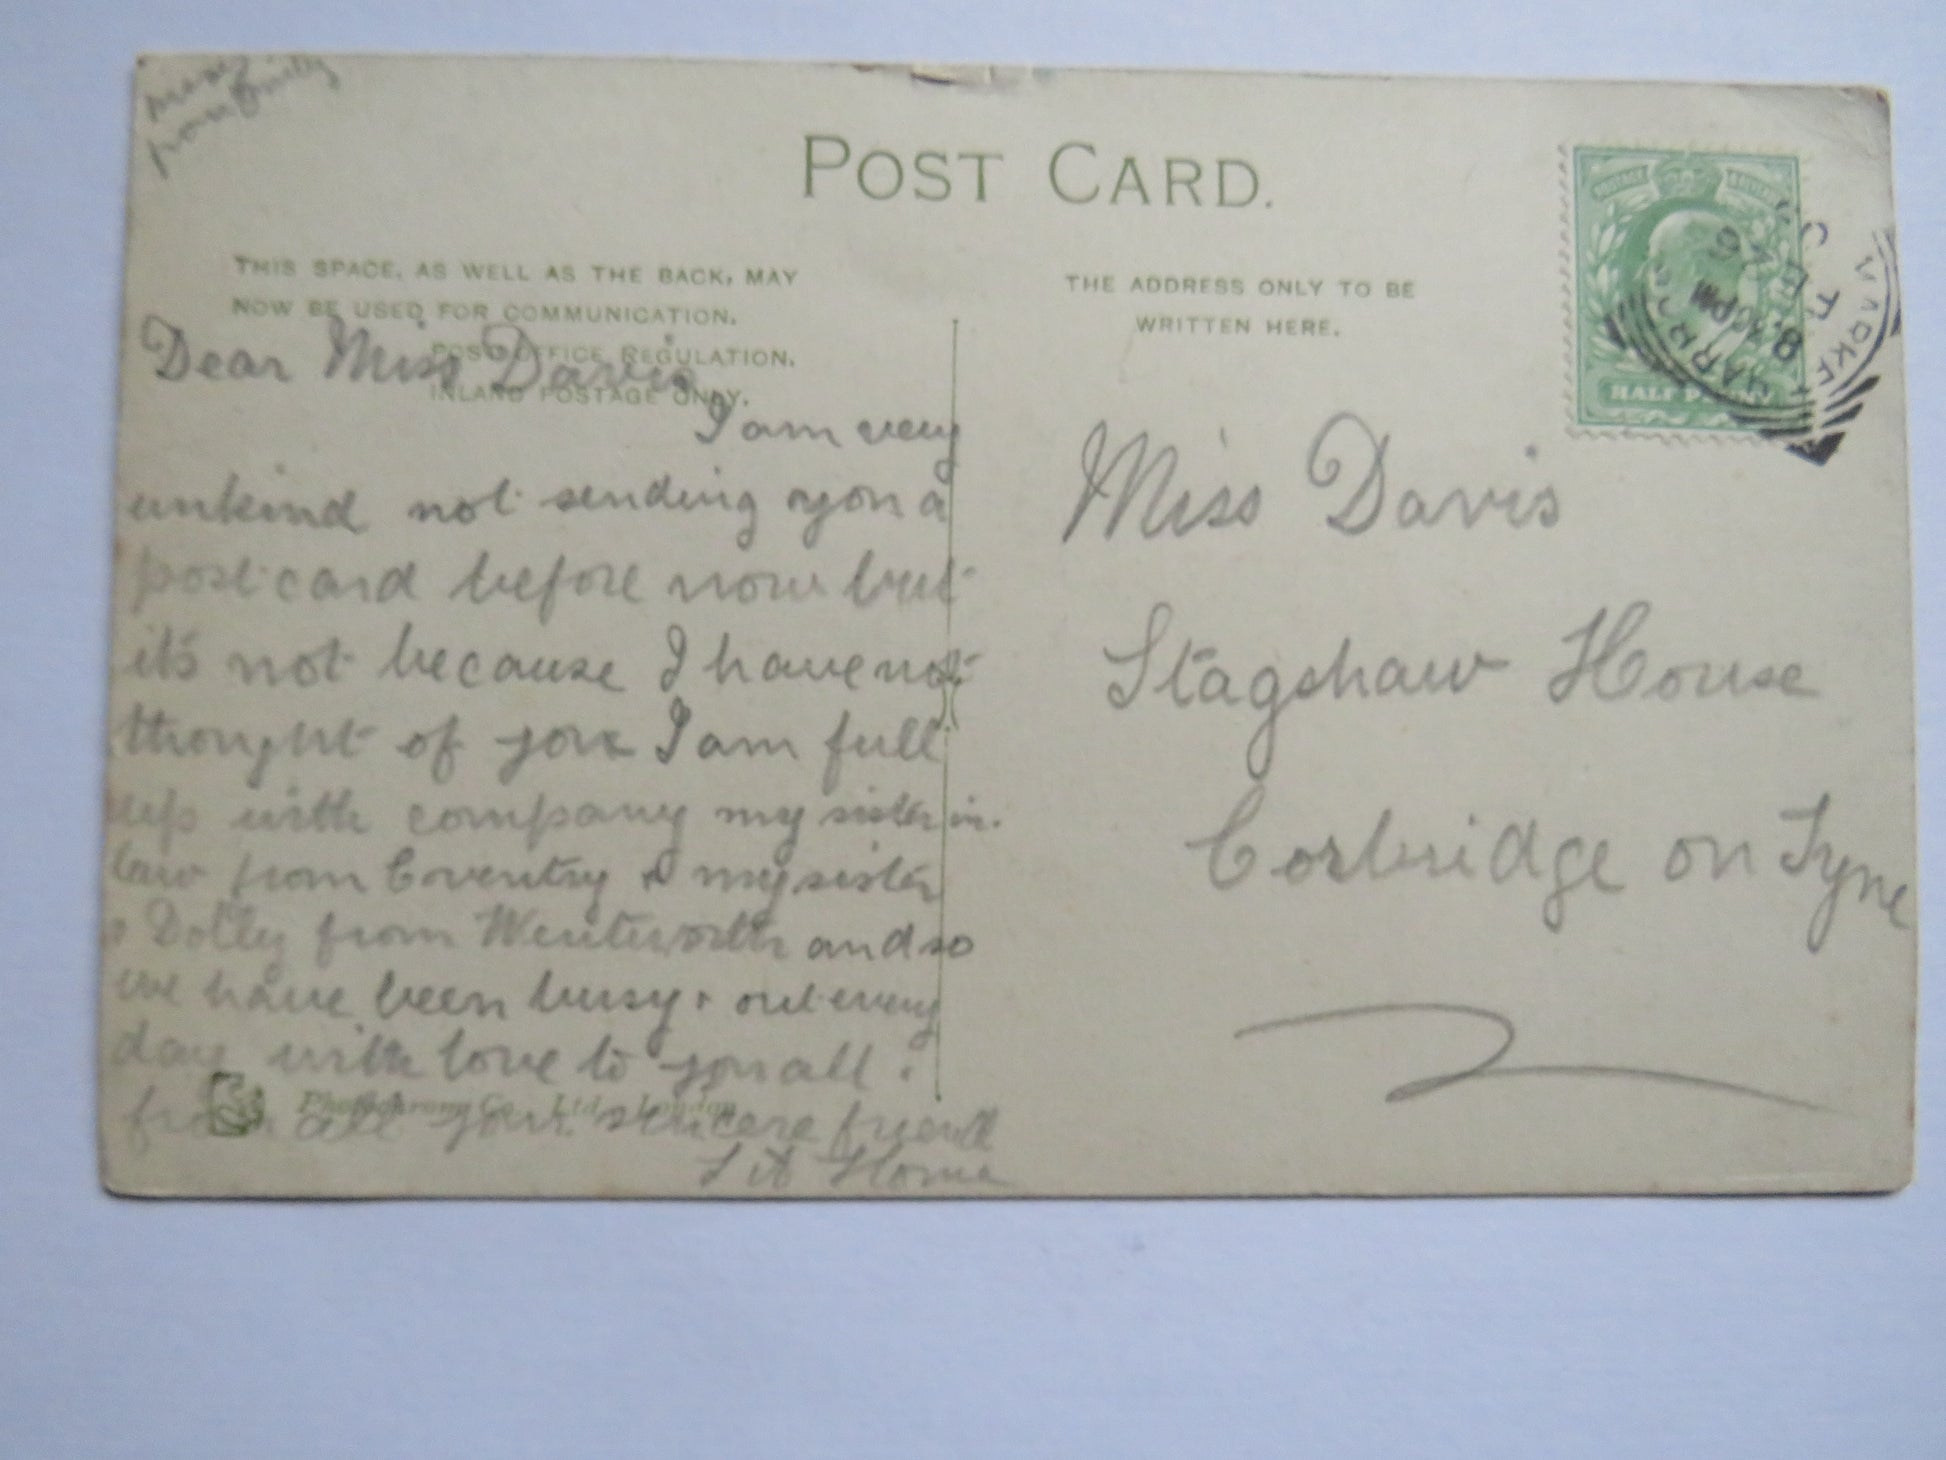 POST CARD.
THIS SPACE, AS WELL AS THE BACK, MAY
NOW BE USED FOR COMMUNICATION.
POST OFFICE REGULATION.
INLAND POSTAGE ONLY.
Dear Miss Davis
I am very
unkind not sending you a
post card before now but
it's not because I have not
thought of you I am full
up with company my sister in.
law from Coventry & my sister
& Dolly from Wentworth and so
we have been busy & out every
day with love to you all.
from all your sincere friend
Horne
Photochrom Co., Ltd., London
THE ADDRESS ONLY TO BE
WRITTEN HERE.
Miss Davis
Stagshaw House
Corbridge on Tyne
POSTAGE & REVENUE
HALF PENNY
MARKET HARBORO
8.15 PM